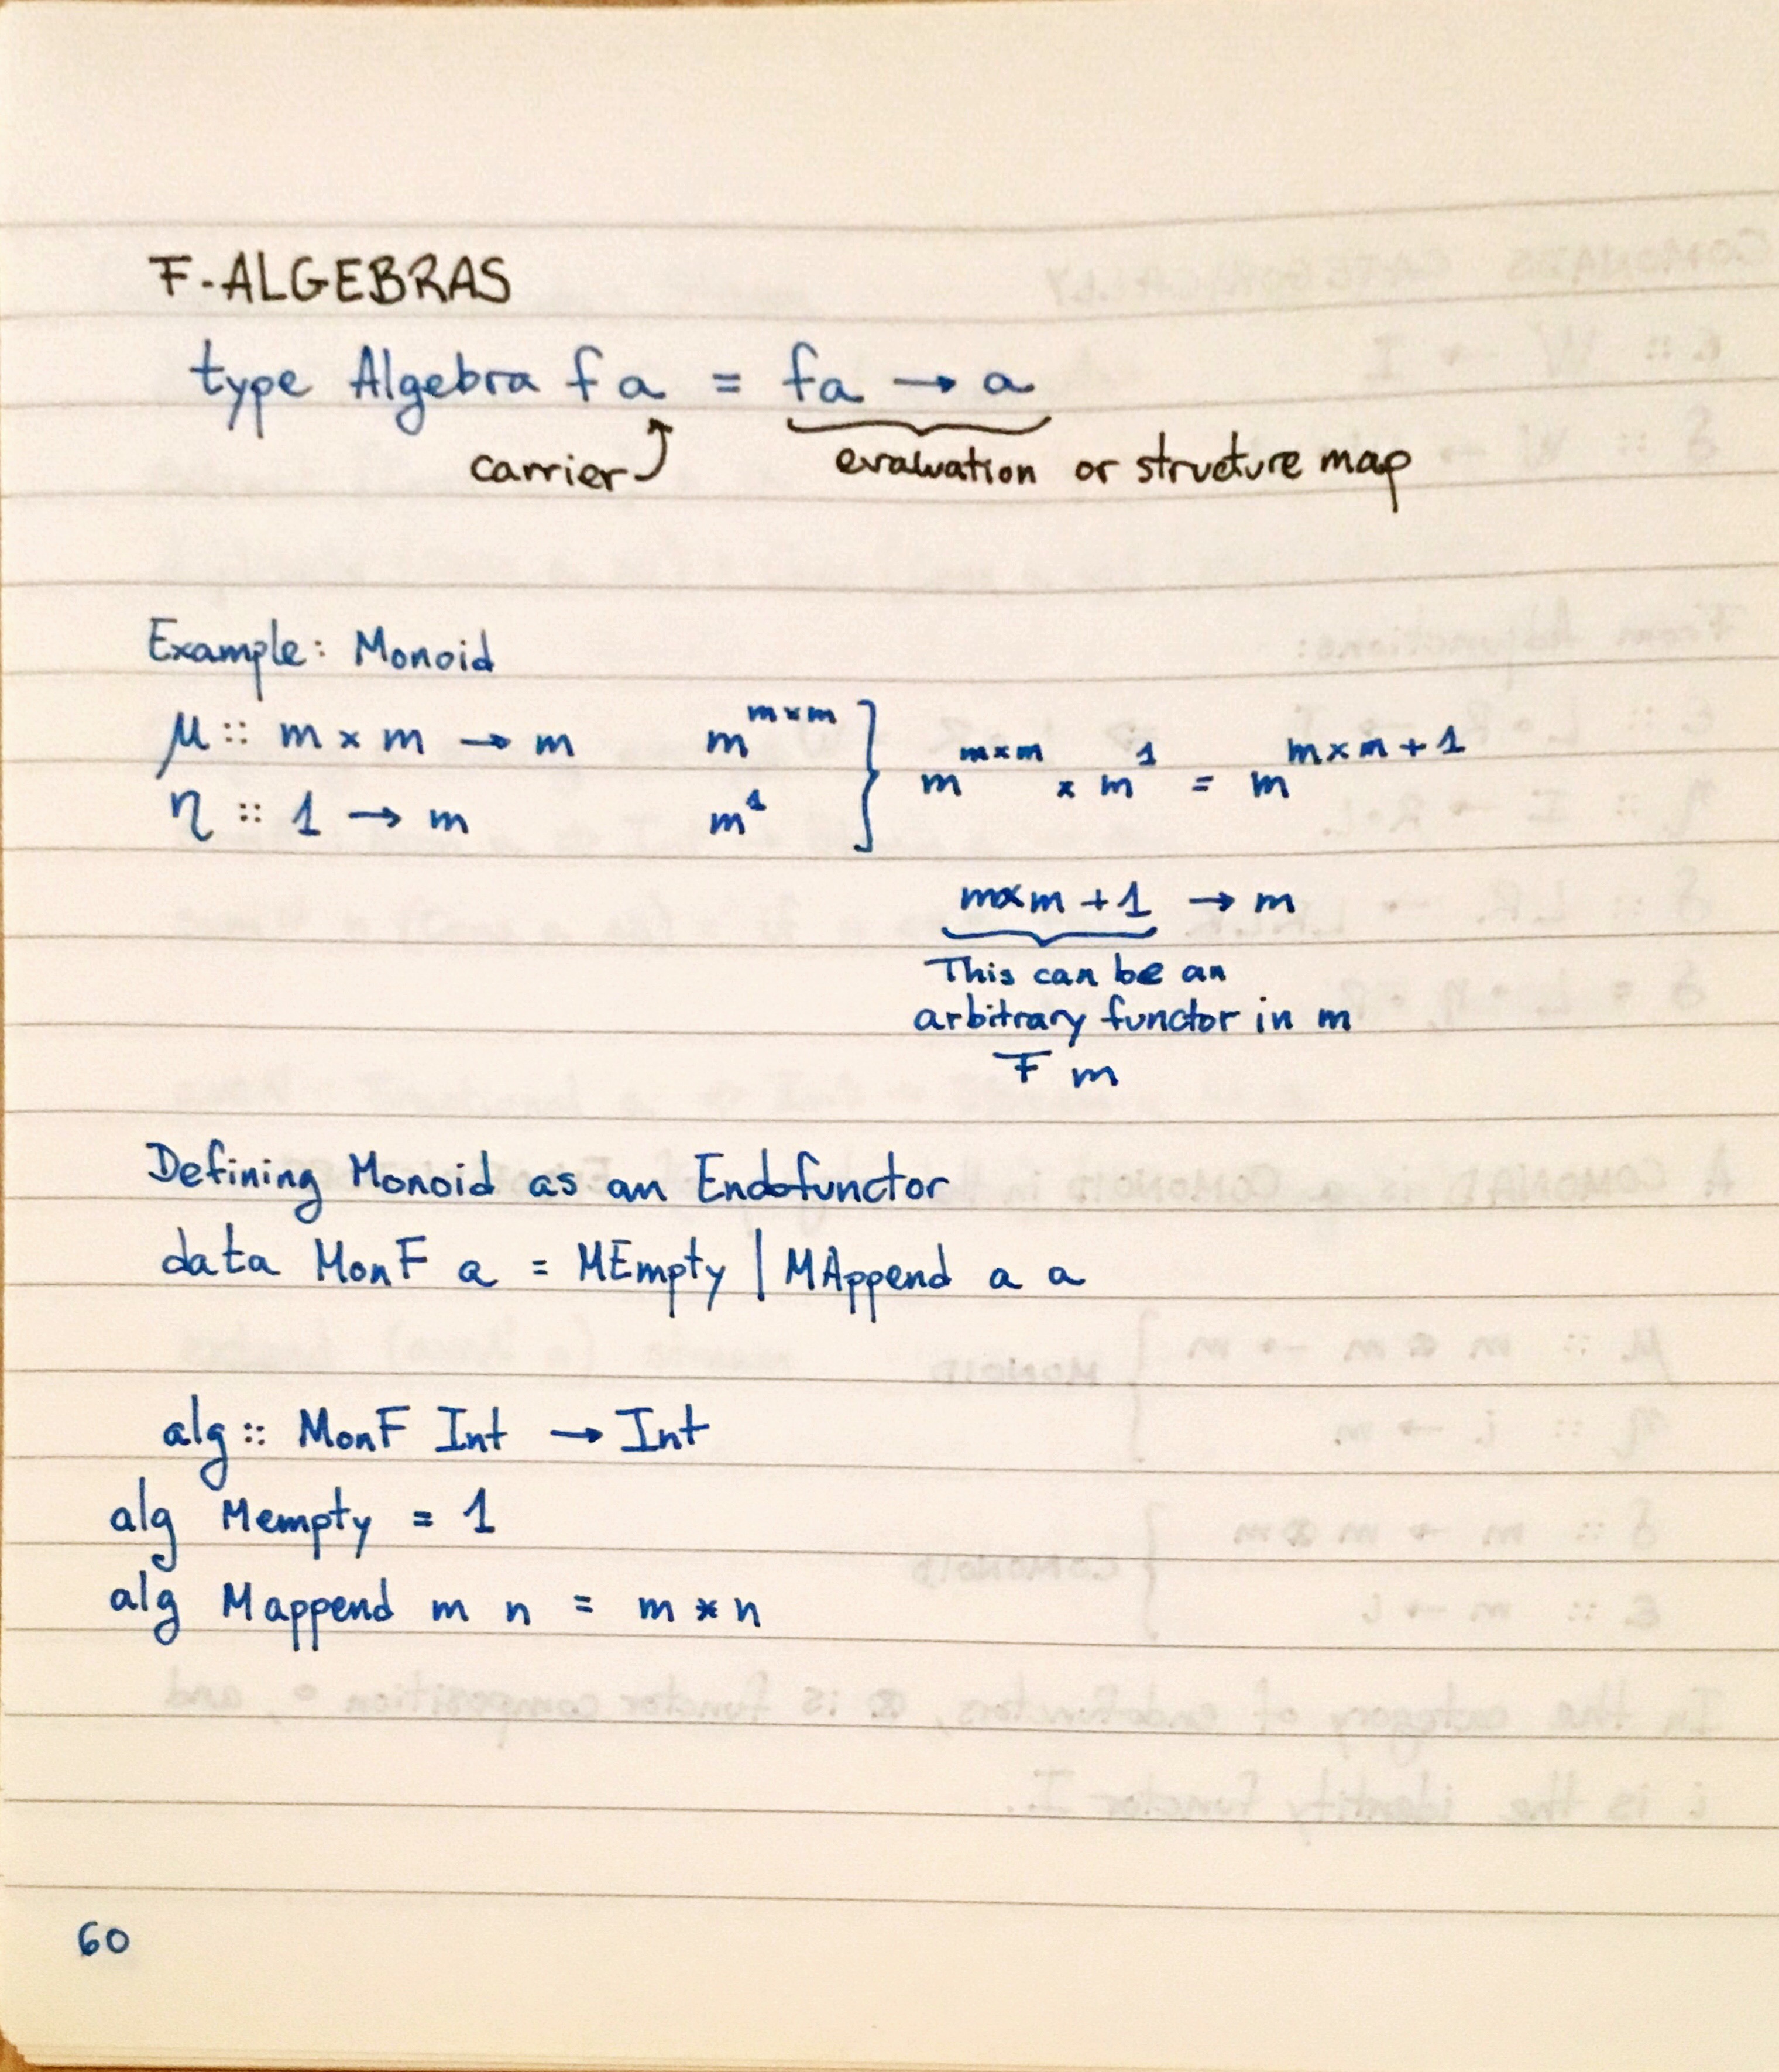 F-ALGEBRAS
type Algebra f a = fa → a
carrier evaluation or structure map
Example: Monoid
μ :: m × m → m m^{m×m}
η :: 1 → m m^1
m^{m×m} × m^1 = m^{m×m+1}
m×m+1 → m
This can be an
arbitrary functor in m
F m
Defining Monoid as an Endofunctor
data MonF a = MEmpty | MAppend a a
alg :: MonF Int → Int
alg Mempty = 1
alg Mappend m n = m * n
60